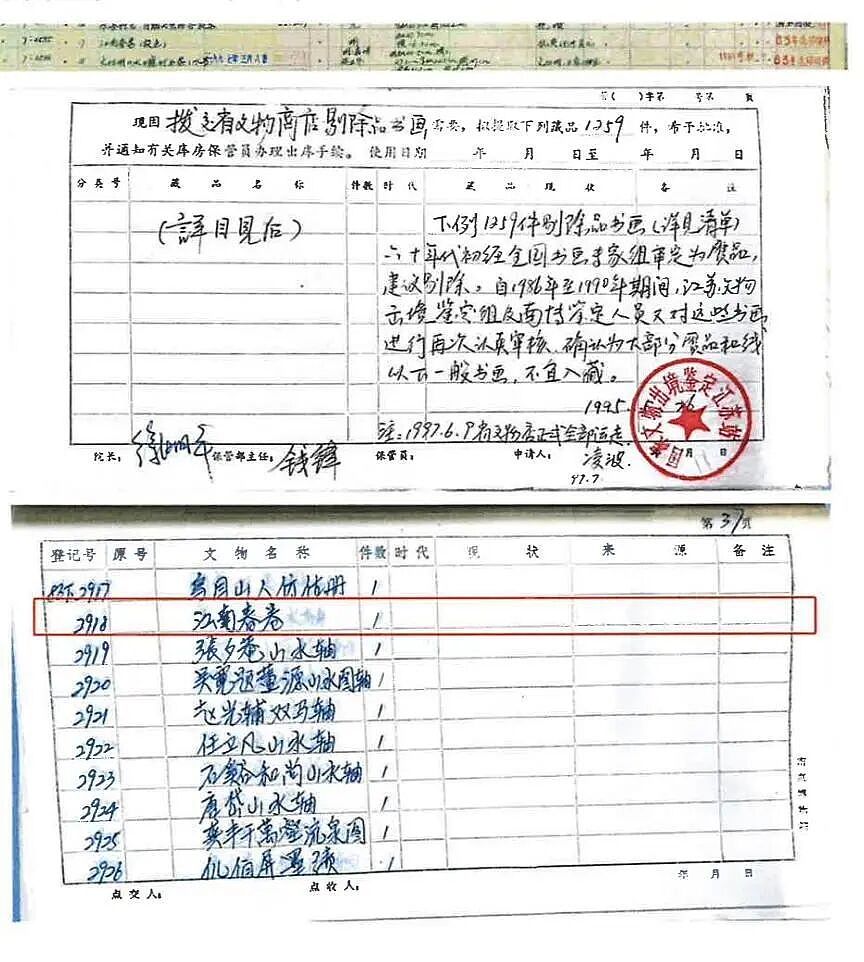 字( )字第 号第 页
现因 拨交省文物商店剔除品书画 需要，拟提取下列藏品1259件，希予批准，
并通知有关库房保管员办理出库手续。 使用日期 年 月 日至 年 月 日
分类号 藏品名称 件数 时代 藏品现状 备注
(詳目見后)
下例1259件剔除品书画(详见清单)
六十年代初经全国书画专家组审定为赝品,
建议剔除。自1986年至1990年期间,江苏文物
出境鉴定组及南博鉴定人员又对这些书画
进行再次认真审核,确认为大部分赝品和线
以下一般书画,不宜入藏。
1995.
注:1997.6.9省文物店正式全部运走
院长： 徐湖平 保管部主任： 钱锋 保管员： 申请人： 凌波 月 日
97.7.
国家文物出境鉴定江苏站
第37页
登记号 原号 文物名称 件数 时代 现状 来源 备注
2917 乌目山人仿古册 1
2918 江南春卷 1
2919 張夕菴山水轴 1
2920 吴寬题董源山水图轴 1
2921 赵光辅双马轴 1
2922 任立凡山水轴 1
2923 石谿和尚山水轴 1
2924 唐岱山水轴 1
2925 龚半千萬壑流泉图 1
2926 1
年 月 日
点交人： 点收人：